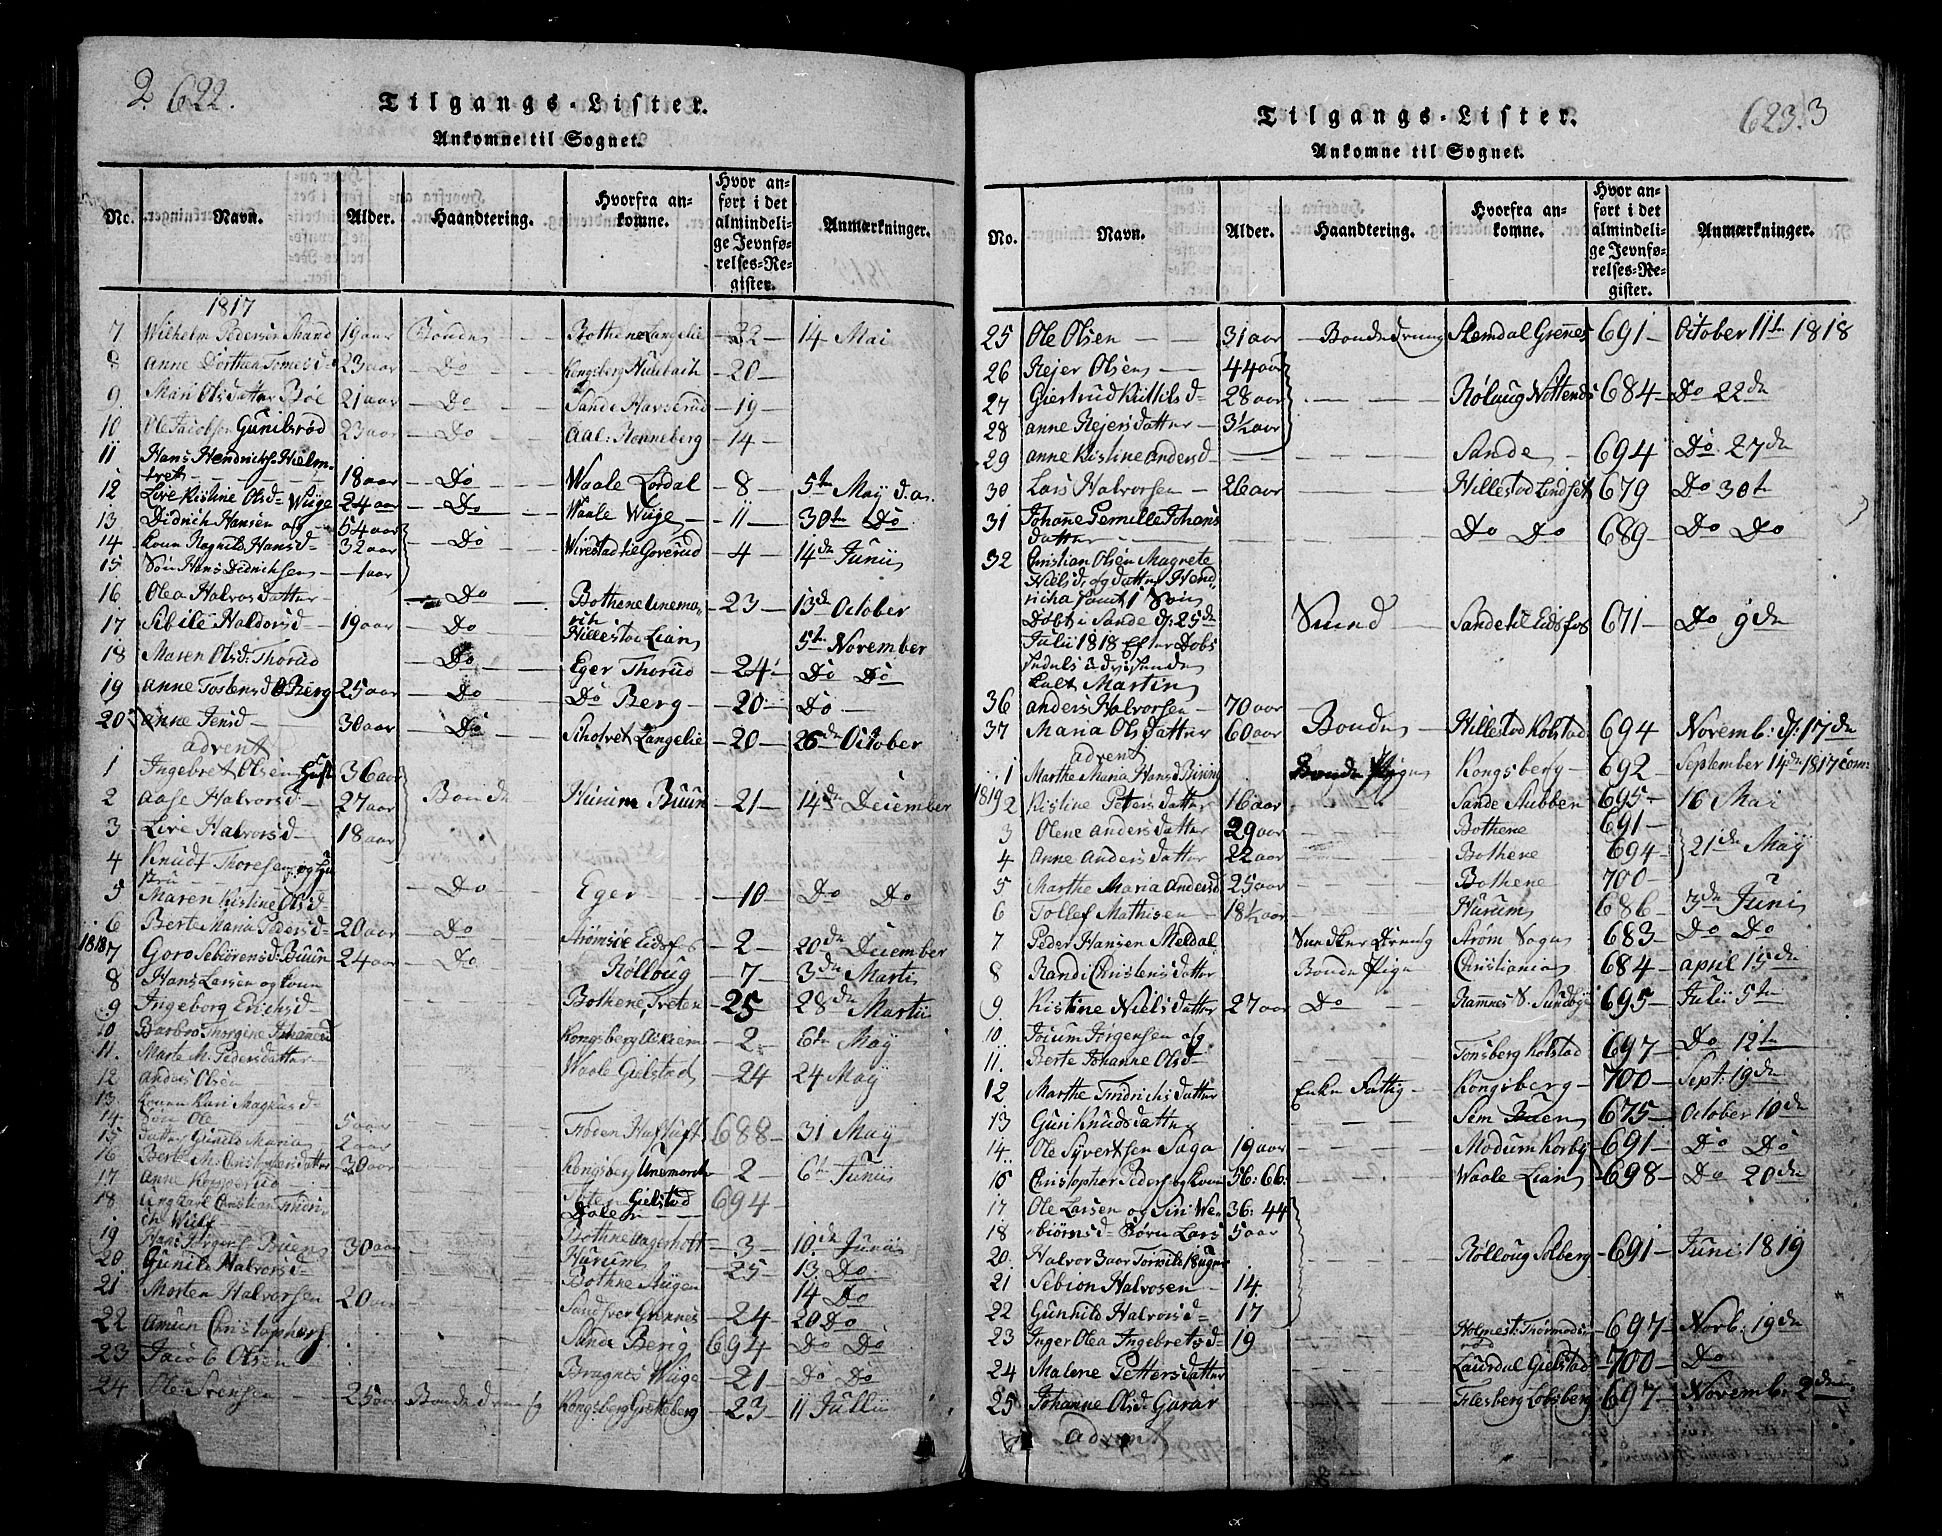 2 622.
Tilgangs-Lister.
Ankomne til Sognet.
No. Navn. Alder. Haandtering. Hvorfra ankomne. Hvor anført i det almindelige Jevnførelses-Register. Anmærkninger.
1817
7 Wilhelm Pedersen Strand 19 aar Bonden Bothene Langelie 22 14 Mai
8 Anne Dorthea Tomesd- 23 aar Do Kongsberg 20
9 Mari Olsdatter Bøe 21 aar Do Sande Havserud 19
10 Ole Jacobsen Gunilsrød 23 aar Do Aal: Renneberg 14
11 Hans Hendrichs: Hielm-
tvet 18 aar Do Waale Lordal 8 5te May d. a.
12 Live Kistine Olsd- Wüge 24 aar Do Waale Wüge 11 30te Do
13 Didrich Hansen og 54 aar
14 Kone Regnild Hansd- 32 aar Do Wivestad til Goverud 4 14de Junii
15 Søn Hans Didrichsen 1 aar
16 Olea Halvorsdatter Do Bothene Unemarch 23 13de October
17 Sibile Haldorsd- 19 aar Do Hillestad Lian 5te November
18 Maren Olsd: Thorud Do Eger Thorud 24 Do Do
19 Anne Tostensd Berg 25 aar Do Do Berg 20 Do
20 Anne Jensd 30 aar Do Skolvet Langelie 20 26de October
advent
1 Ingebret Olsen 36 aar
2 Aase Halvorsd- 27 aar Bonde Hurum Buun 21 14de December
3 Live Halvorsd- 18 aar
4 Knudt Thoresen og Hu-
stru
5 Maren Kistine Olsd- Do Eger 10 Do Do
6 Berte Maria Pedersd- 20 aar Do Strømsøe Eidsfos 2 20de December
1818 7 Goro Sebiørensd: Buun 24 aar Do Rølloug 7 3de Marti
8 Hans Larsen og Kone
9 Ingeborg Erichsd- Bothene Treten 25 28de Martii
10 Barbro Thorgine Johannesd Kongsberg 2 6te May
11. Marte M. Pedersdatter
12 Anders Olsen Waale Gielstad 24 24 May
13. Konen Kari Magnusd-
14. Søn Ole 5 aar
15 Datter Gunild Maria 2 aar Foden 688 31 May
16 Berte M: Christensdatter 30 aar Kongsberg Unemarch 2 6te Junii
17 Anne
18 Ungkarl Christian Fridri-
ch Wulf Gielstad 694
19 Hans Jørgens: Buen 30 aar Bothne 3 10de Junii
20. Gunild Halvorsd- Hurum 25 13. Do
21 Morten Halvorsen 20 aar Bothne 14 Do
22 Amun Christophers: Sandsver Grennes 24 20 Do
23 Jacob Olsen Sande Berig 694 Do Do
Bragnes Wüge 21 Do Do
24 Ole Svensen 25 aar Bondedreng Kongsberg 23 11 Julii
623. 3
Tilgangs-Lister.
Ankomne til Sognet.
No. Navn. Alder. Haandtering. Hvorfra ankomne. Hvor anført i det almindelige Jevnførelses-Register. Anmærkninger.
25 Ole Olsen 31 aar Bondedreng Slemdal Grenes 691 October 11te 1818
26 Rejer Olsen 44 aar
27 Giertrud Kittilsd- 28 aar Rolaug 684 Do 22de
28 Anne Rejersdatter 3½ aar
29 Anne Kistine Andersd- Sande 694 Do 27de
30 Lars Halvorsen 26 aar Hillestad Lindset 679 Do 30te
31 Johanne Pernille Johans
datter Do Do 689 Do Do
32 Christian Olsen Magrete
Nielsd. og datter Hend-
richa samt 1 Søn
Døbt i Sande d: 25de Smed Sande til Eidsfos 671 Do 9de
Julii 1818 Efter Dobs
Sedels udvisende
kalt Martin
36 Anders Halvorsen 70 aar
37 Maria Olsdatter 60 aar Bonden Hillestad Kolstad 694 Novemb: d: 17de
advent
1 Marthe Maria Hansd Biring Bonde Pigen Kongsberg 692 September 14de 1817 com:
1819 2 Kistine Petersdatter 16 aar Sande Stubben 695 16 Mai
3 Olene Andersdatter 29 aar Bothene 691
4 Anne Andersdatter 22 aar Bothene 694 21de May
5 Marthe Maria Andersd 25 aar Bothene 700
6 Tollef Mathisen 18½ aar Hurum 686 3de Juni
7 Peder Hansen Meldal Smedsvend Strøm Sogn 683 Do Do
8 Randi Christensdatter Bonde Pige Christiania 684 April 15de
9 Kistine Nielsdatter 27 aar Do Ramnes S. Sundbye 695 Julii 5te
10. Joium Jørgensen og
11. Berte Johanne Olsd- Tonsberg Kolstad 697 Do 12te
12 Marthe Fridrichsdatter Enke Fattig Kongsberg 700 Sept: 19de
13 Guri Knudsdatter Sem Buen 675 October 10de
14. Ole Syvertsen Saga 19 aar Modum Korby 691 Do Do
15 Christopher Peders: og Kone 56: 66 Waale Lian 698 Do 20de
17 Ole Larsen og Siri We- 36: 44
18 biørnsd- Børn Lars 5 aar
20. Halvor 3 aar Torsild 18 uger Rølloug Solberg 691 Juni 1819
21 Sebion Halvorsen 14
22 Gunhild Halvorsd- 17
23 Inger Olea Ingebretsd- 19 Holmest: Thormods-
rød 697 Novb: 19de
24 Malene Pettersdatter Laurdal Gielstad 700 Do
25 Johanne Olsd: Garar Flesberg Lobsberg 697 November 2den
advent